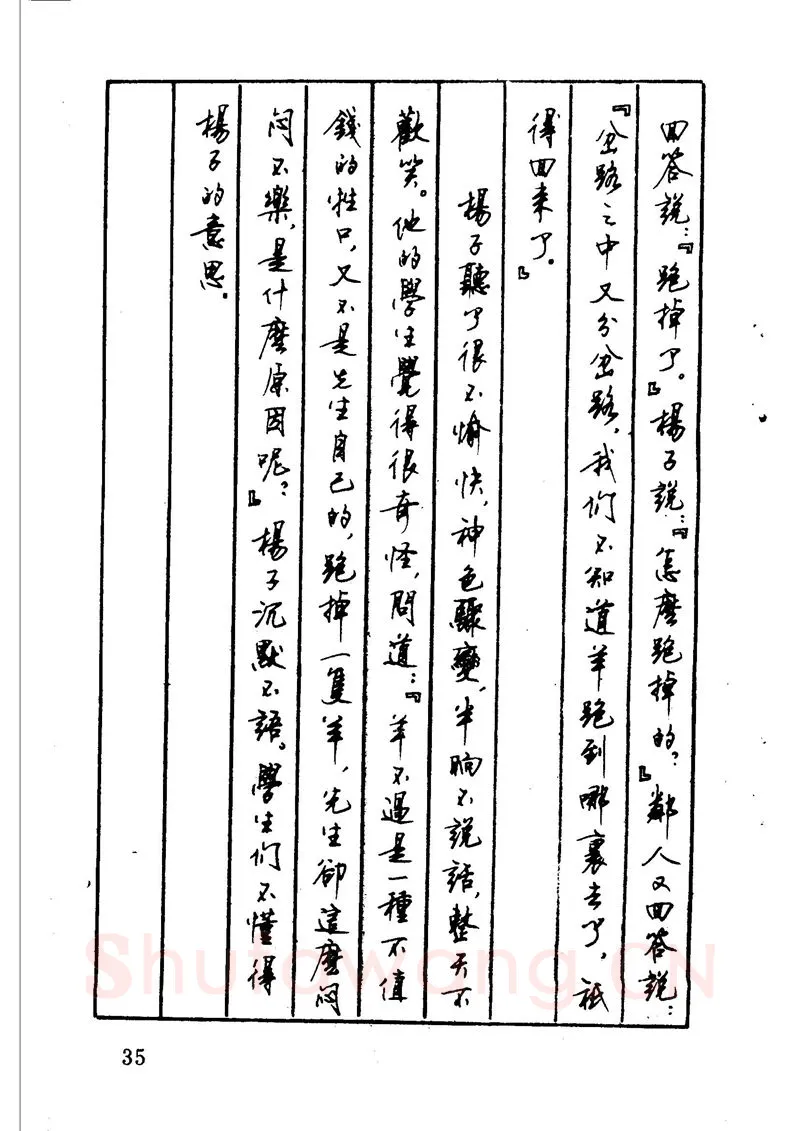 回答說：『跑掉了。』楊子說：『怎麼跑掉的？』鄰人又回答說：
『岔路之中又分岔路，我们不知道羊跑到哪裏去了，祇
得回来了。』
楊子聽了很不愉快，神色驟變，半晌不説話，整天不
歡笑。他的學生覺得很奇怪，問道：『羊不過是一種不值
錢的牲口，又不是先生自己的，跑掉一隻羊，先生卻這麼悶
闷不樂，是什麼原因呢？』楊子沉默不語。學生们不懂得
楊子的意思。
35
Shufawang.CN